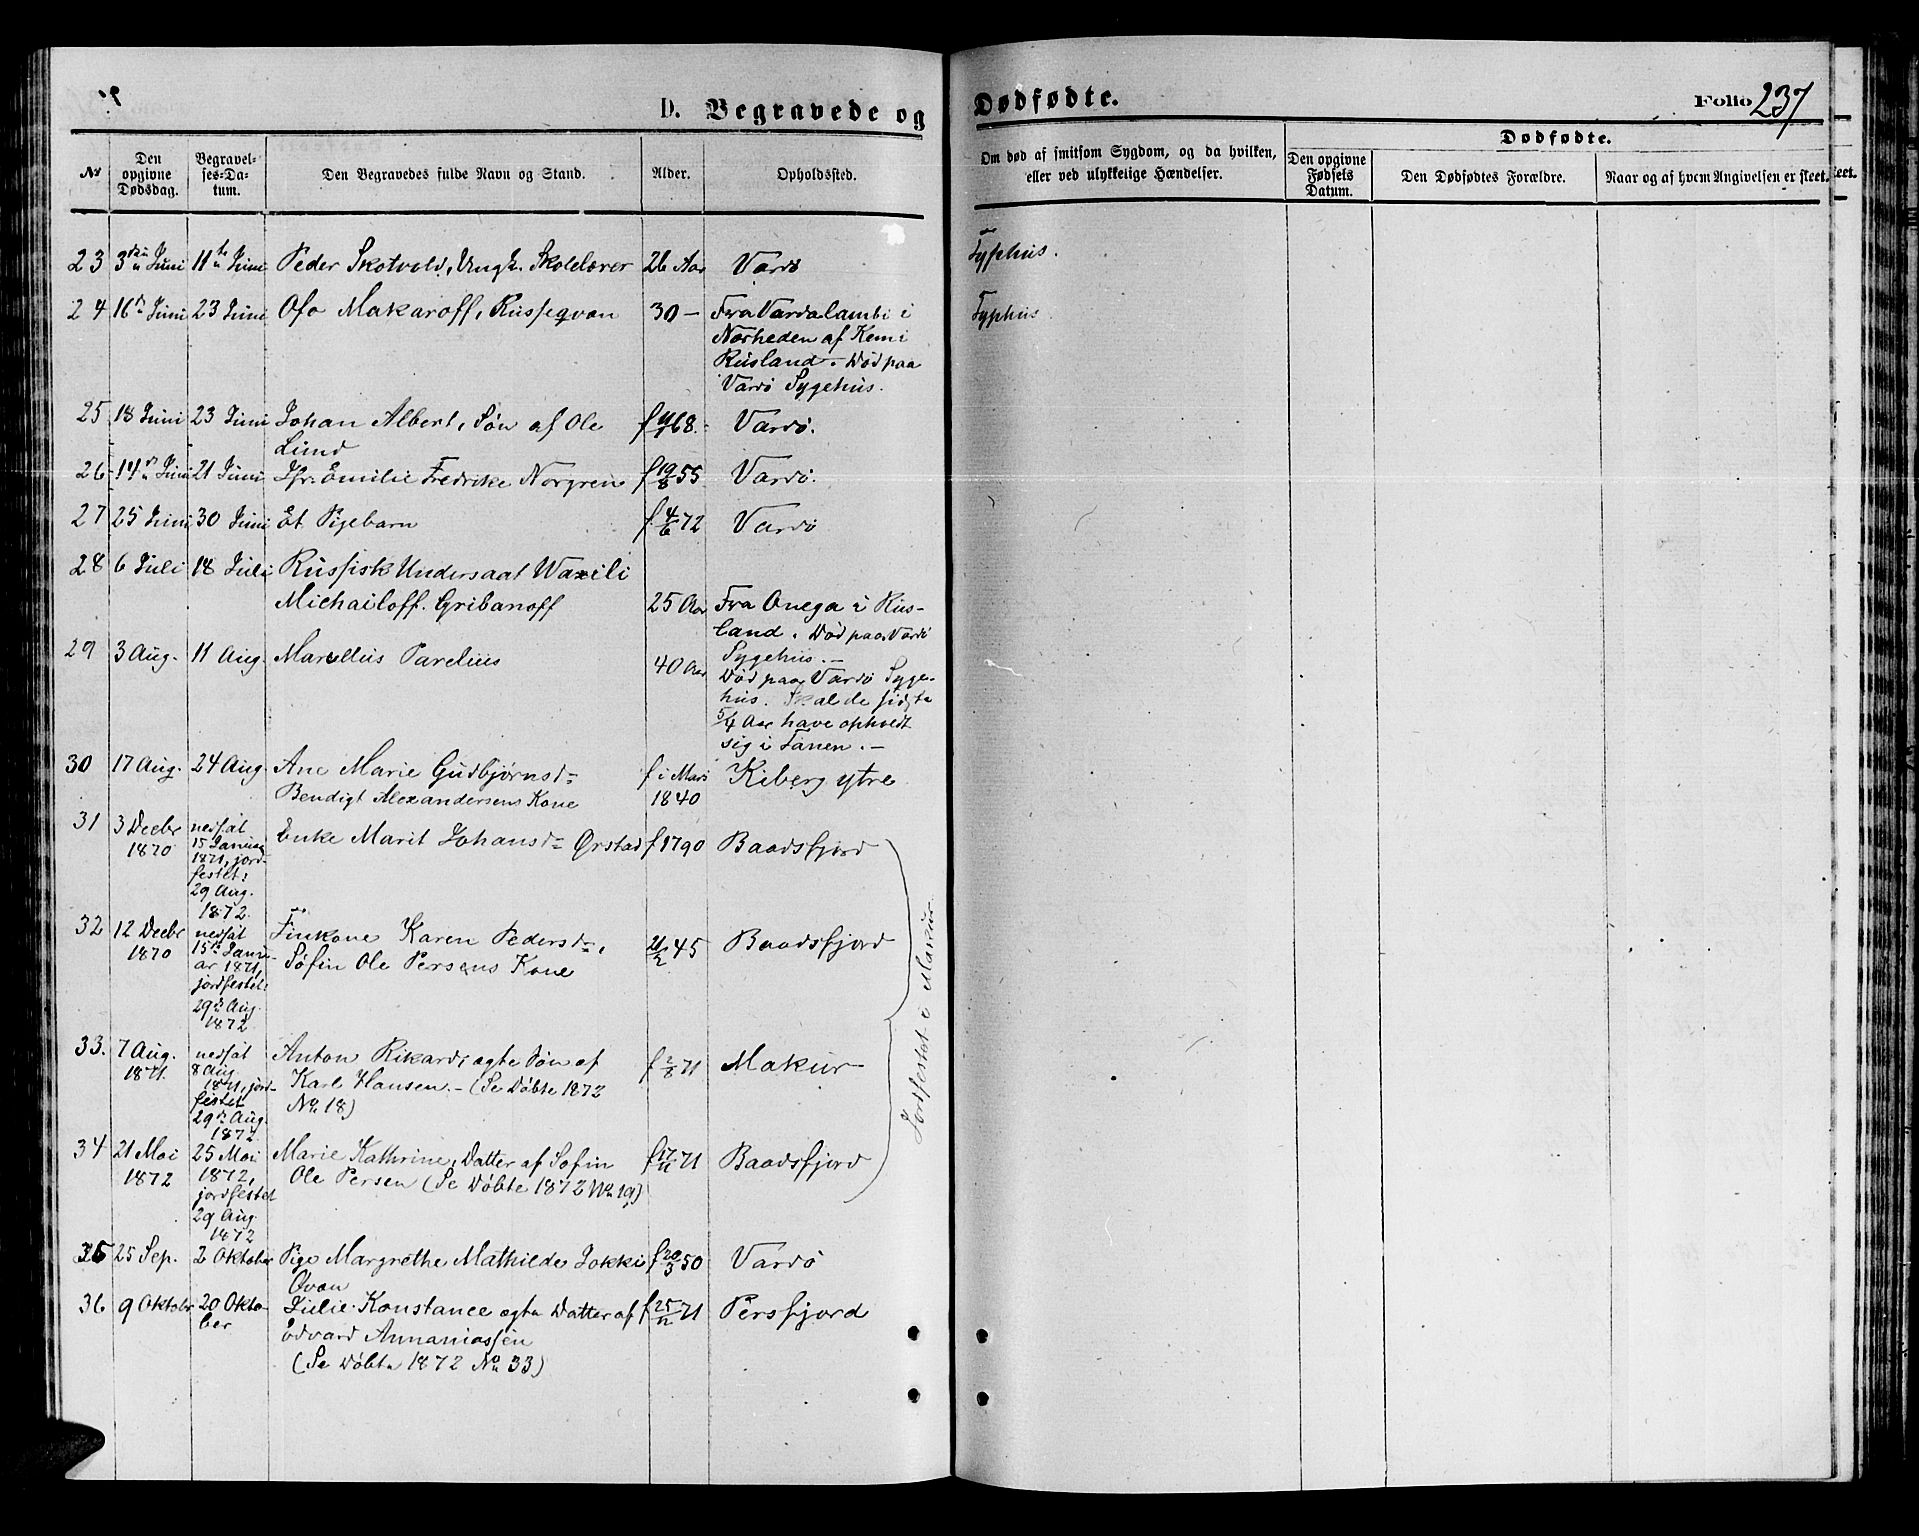 D. Begravede og Dødfødte.
Folio 237
Nr
Den opgivne Dødsdag.
Begravelses-Datum.
Den Begravedes fulde Navn og Stand.
Alder.
Opholdssted.
Om død af smitsom Sygdom, og da hvilken, eller ved ulykkelige Hændelser.
Dødfødte.
Den opgivne Fødsels Datum.
Den Dødfødtes Forældre.
Naar og af hvem Angivelsen er skeet.
23 3die Juni 11te Juni Peder Skotvold, Ungk. Skolelærer 26 Aar Vardø Typhus.
24 16de Juni 23 Juni Ofo Makaroff, Russeqvæn 30 — Fra Vardalambi i Typhus.
Nærheden af Kemi
Rusland. Død paa
Vardø Sygehus.
25 18 Juni 23 Juni Johan Albert, Søn af Ole f 68. Vardø.
Lund
26 14de Juni 21 Juni Jfr. Emilie Fredrike Norgren f 19/8 55 Vardø.
27 25 Juni 30 Juni Et Pigebarn f. 4/6 72 Vardø
28 6 Juli 18 Juli Russisk Undersaat Wasili
Michailoff. Gribanoff 25 Aar Fra Onega i Rus-
land. Død paa Vardø
Sygehus. —
29 3 Aug. 11 Aug. Marellus Parelius 40 Aar
Død paa Vardø Syge-
hus. Skal de sidste
5/4 Aar have opholdt
sig i Tanen. —
30 17 Aug. 24 Aug. Ane Marie Gudbjørnsd= f i Mars Kiberg ytre
Bendigt Alexandersens Kone 1840
31 3 Decbr 1870 nedsat 15 Januar 1871, jordfestet: 29 Aug. 1872. Enke Marit Johansd= Ørstad f 1790 Baadsfjord
32 12 Decbr 1870 nedsat 15de Januar 1871, jordfestet: 29de Aug. 1872. Finkone Karen Pedersd=, 21/2 45 Baadsfjord
Søfin Ole Persens Kone
33. 7 Aug. 1871. nedsat 8 Aug 1871, jordfestet 29de Aug. 1872. Anton Rikard, ægte Søn af f 2/8 71 Makur
Karl Hansen. — (Se Døbte 1872
No. 18)
34 21 Mai 1872 25 Mai 1872, jordfestet 29 Aug 1872 Marie Kathrine, Datter af Søfin f 17/11 71 Baadsfjord
Ole Persen (Se Døbte 1872 No 19)
Jordfestet i Makur.
35 25 Sep. 2 Oktober Pige Margrethe Mathilde Jokki f 20/3 50 Vardø
Qvæn
36 9 Oktobr 20 Oktober Julie Konstance ægte Datter af f 25/11 71 Persfjord
Edvard Annaniassen
(Se Døbte 1872 No 33)